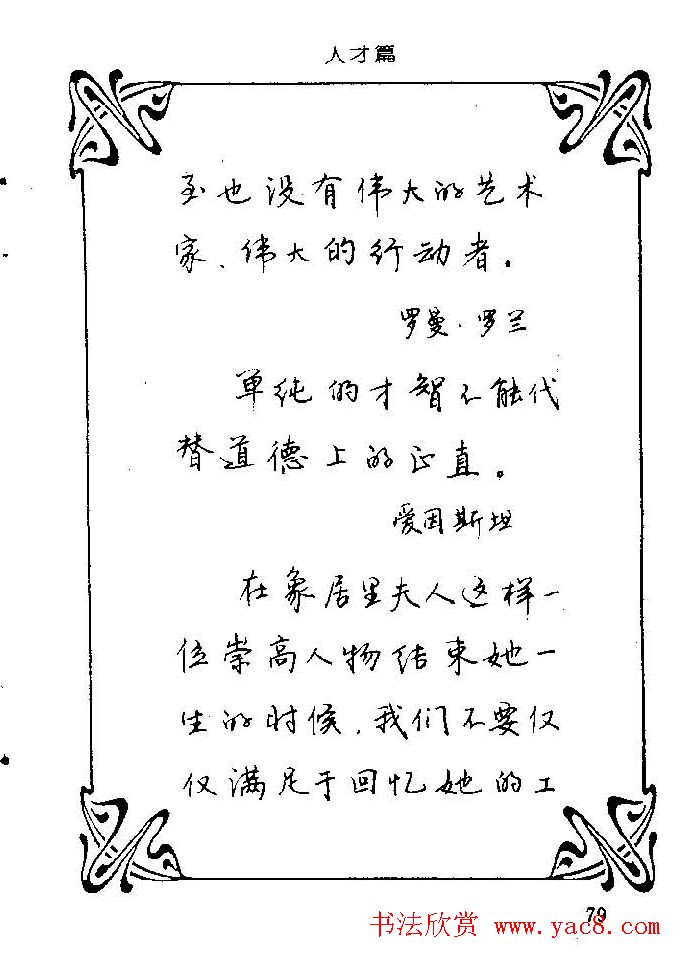 人才篇
至也没有伟大的艺术
家、伟大的行动者。
罗曼·罗兰
单纯的才智不能代
替道德上的正直。
爱因斯坦
在象居里夫人这样一
位崇高人物结束她一
生的时候，我们不要仅
仅满足于回忆她的工
79
书法欣赏 www.yac8.com